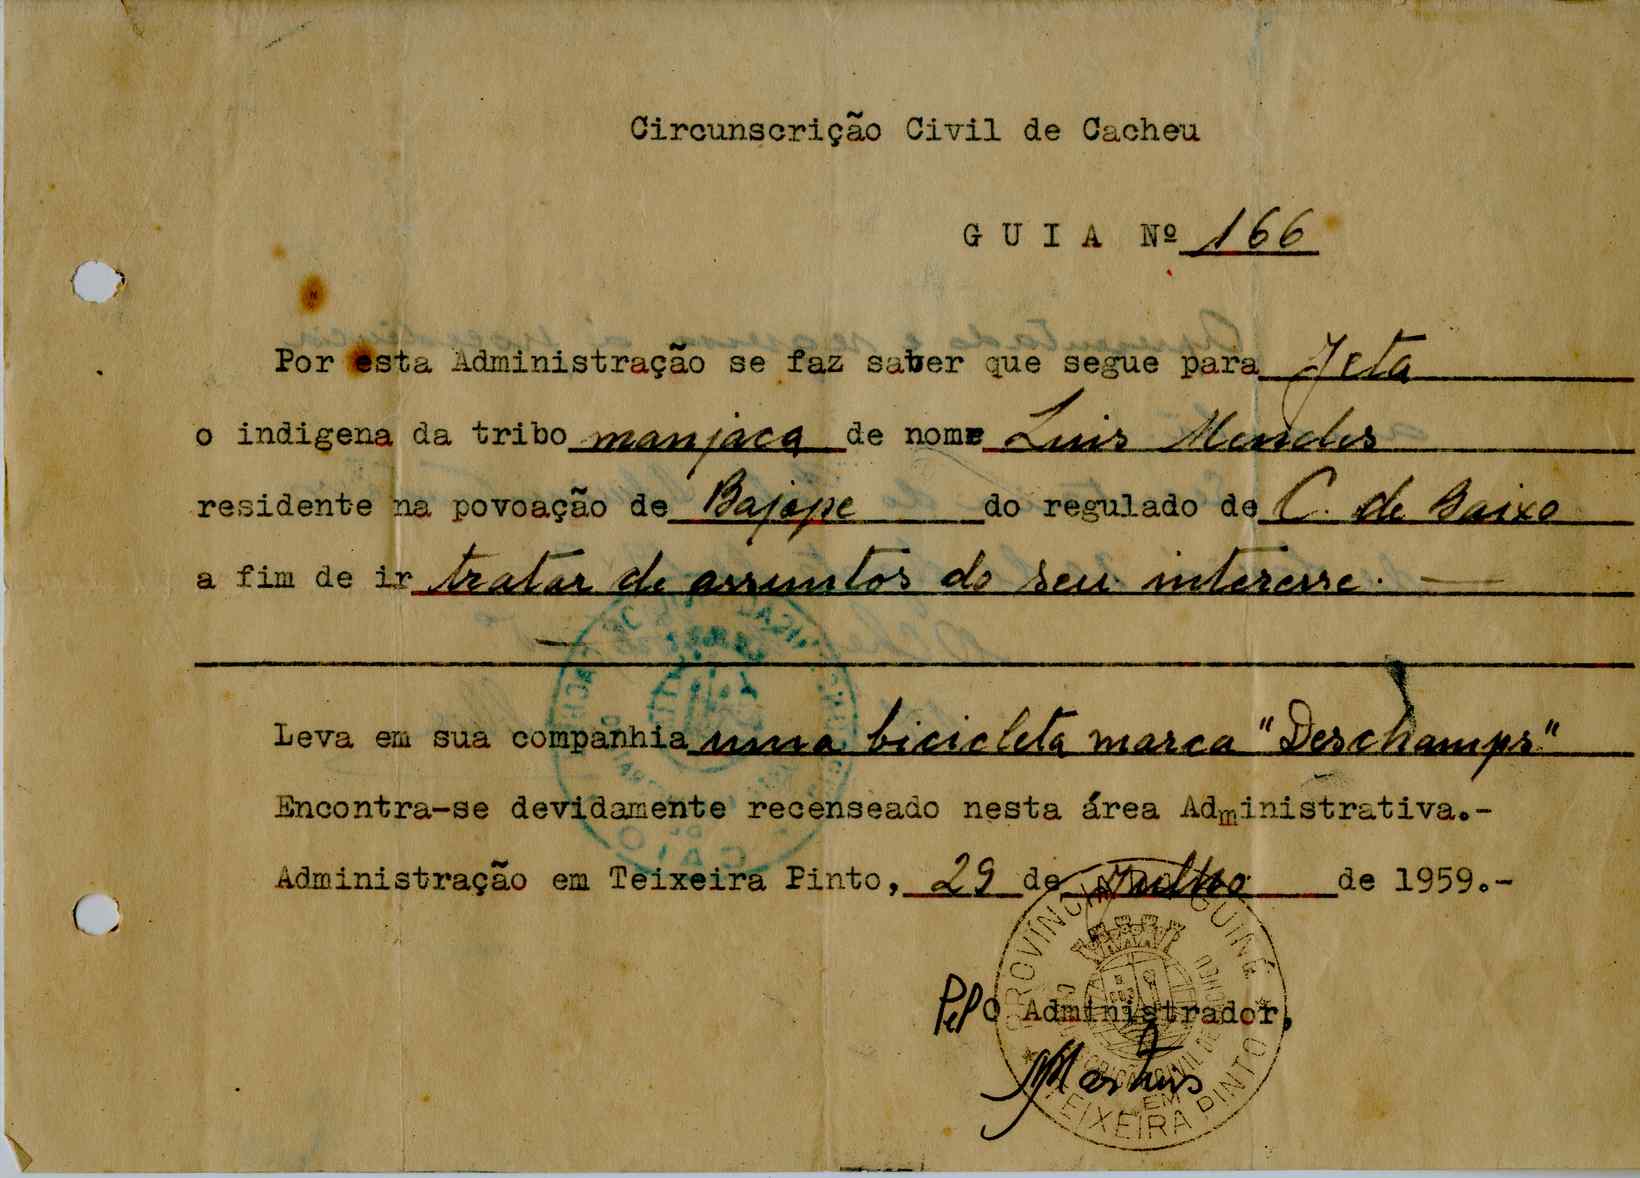 Circunscrição Civil de Cacheu
GUIA Nº 166
Por esta Administração se faz saber que segue para Jeta
o indigena da tribo manjaca de nome Luis Mendes
residente na povoação de Bajope do regulado de C. de Baixo
a fim de ir tratar de assuntos do seu interesse.
Leva em sua companhia uma bicicleta marca "Deschamps"
Encontra-se devidamente recenseado nesta área Administrativa.-
Administração em Teixeira Pinto, 29 de Julho de 1959.-
PROVÍNCIA DA GUINÉ
Pel O Administrador,
Martins
CIVIL DE
EM
TEIXEIRA PINTO